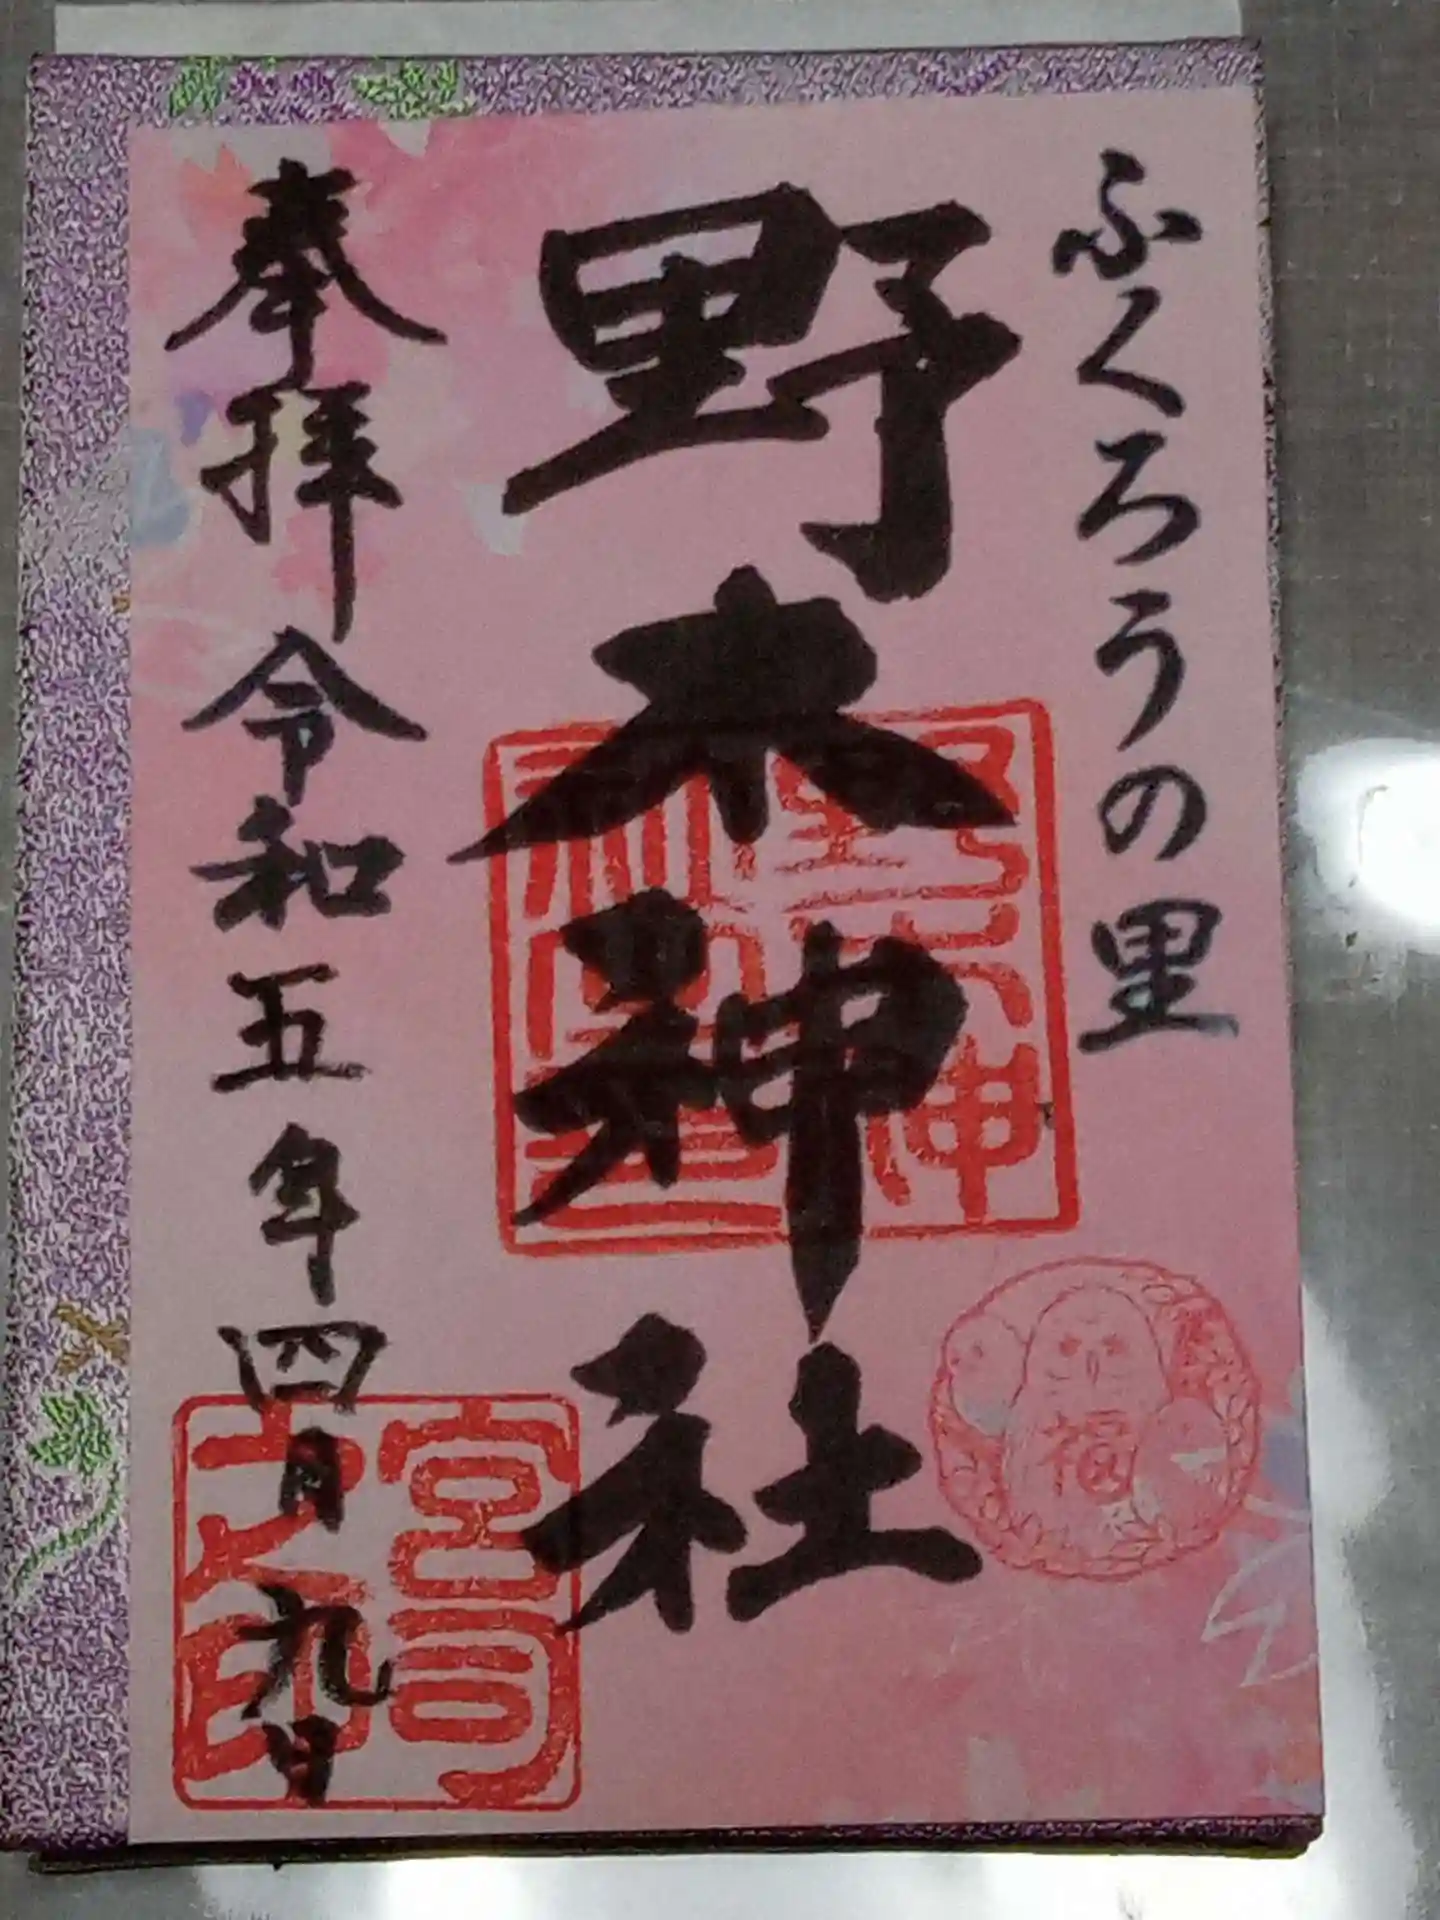 ふくろうの里
野木神社
奉拝 令和五年四月九日
宮司之印
福